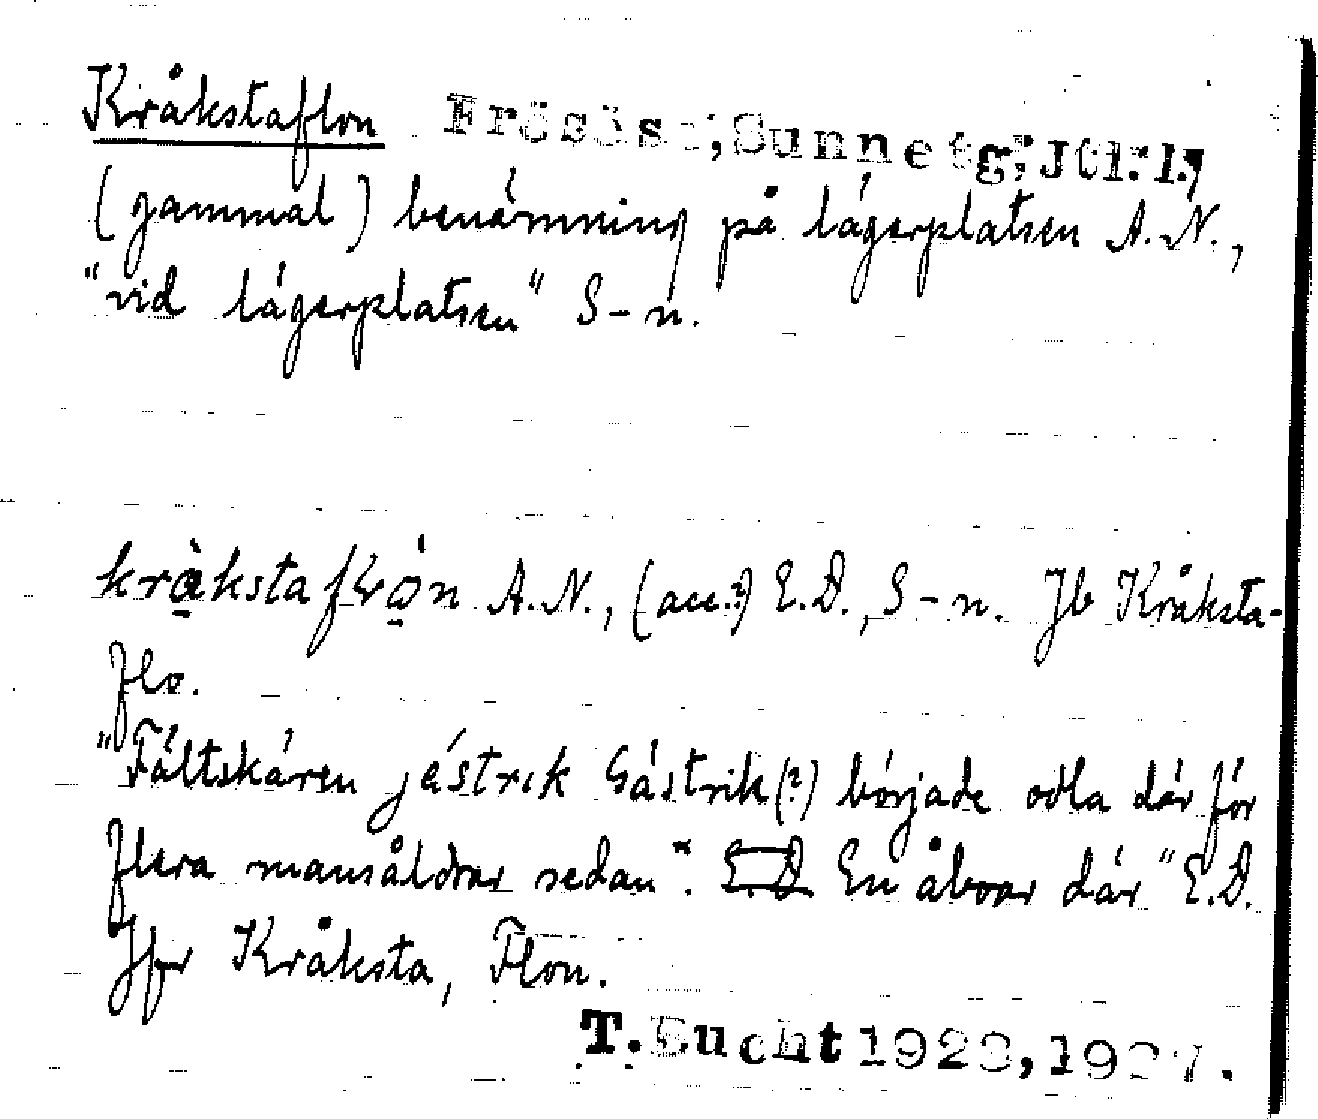 Kråkstaflon Frösö s:n, Sunne tg; Jtl. l.,
(gammal) benämning på lägerplatsen A.N.,
"vid lägerplatsen" S-n.
A.N., (acc.?) E.D., S-n. Jb Kråksta-
flo.
"Fältskären jéstrık Gästrik(?) började odla där för
flera mansåldrar sedan". E.D En åbvar där" E.D.
Jfr Kråksta, Flon.
T. Bucht 1928, 1927.